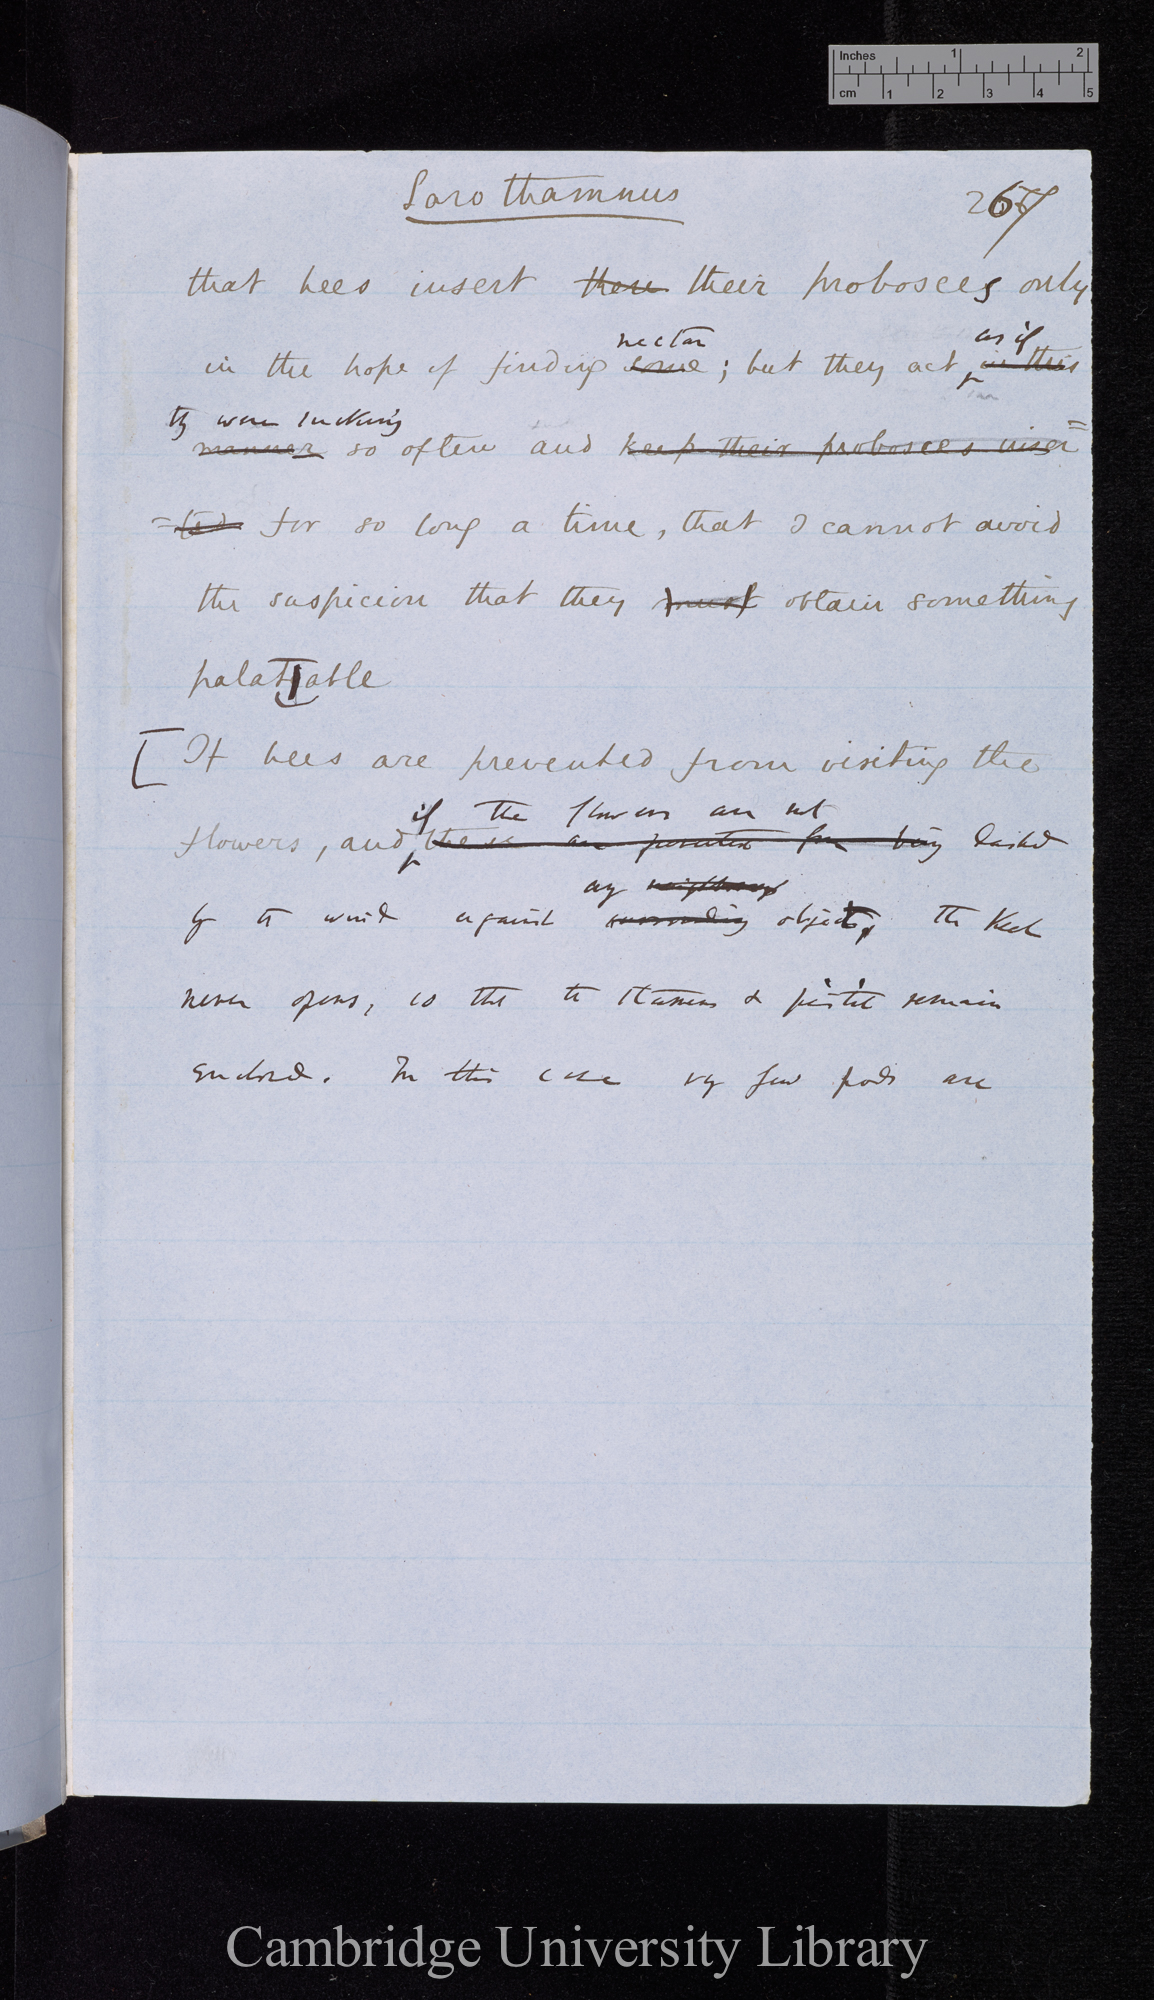 Inches 1 2
cm 1 2 3 4 5
Sarothamnus
267
that bees insert there their probosces only
nectar as if
in the hope of finding some ; but they act in this
ty were sucking
manner so often and keep their probosces inser=
=ted for so long a time, that I cannot avoid
the suspicion that they must obtain something
palatable
[If bees are prevented from visiting the
if the flowers are not
flowers, and these are prevented from being dashed
any neighbouring
by the wind against surrounding objects, the keel
never opens, so that the stamens & pistil remain
enclosed. In this case very few pods are
Cambridge University Library